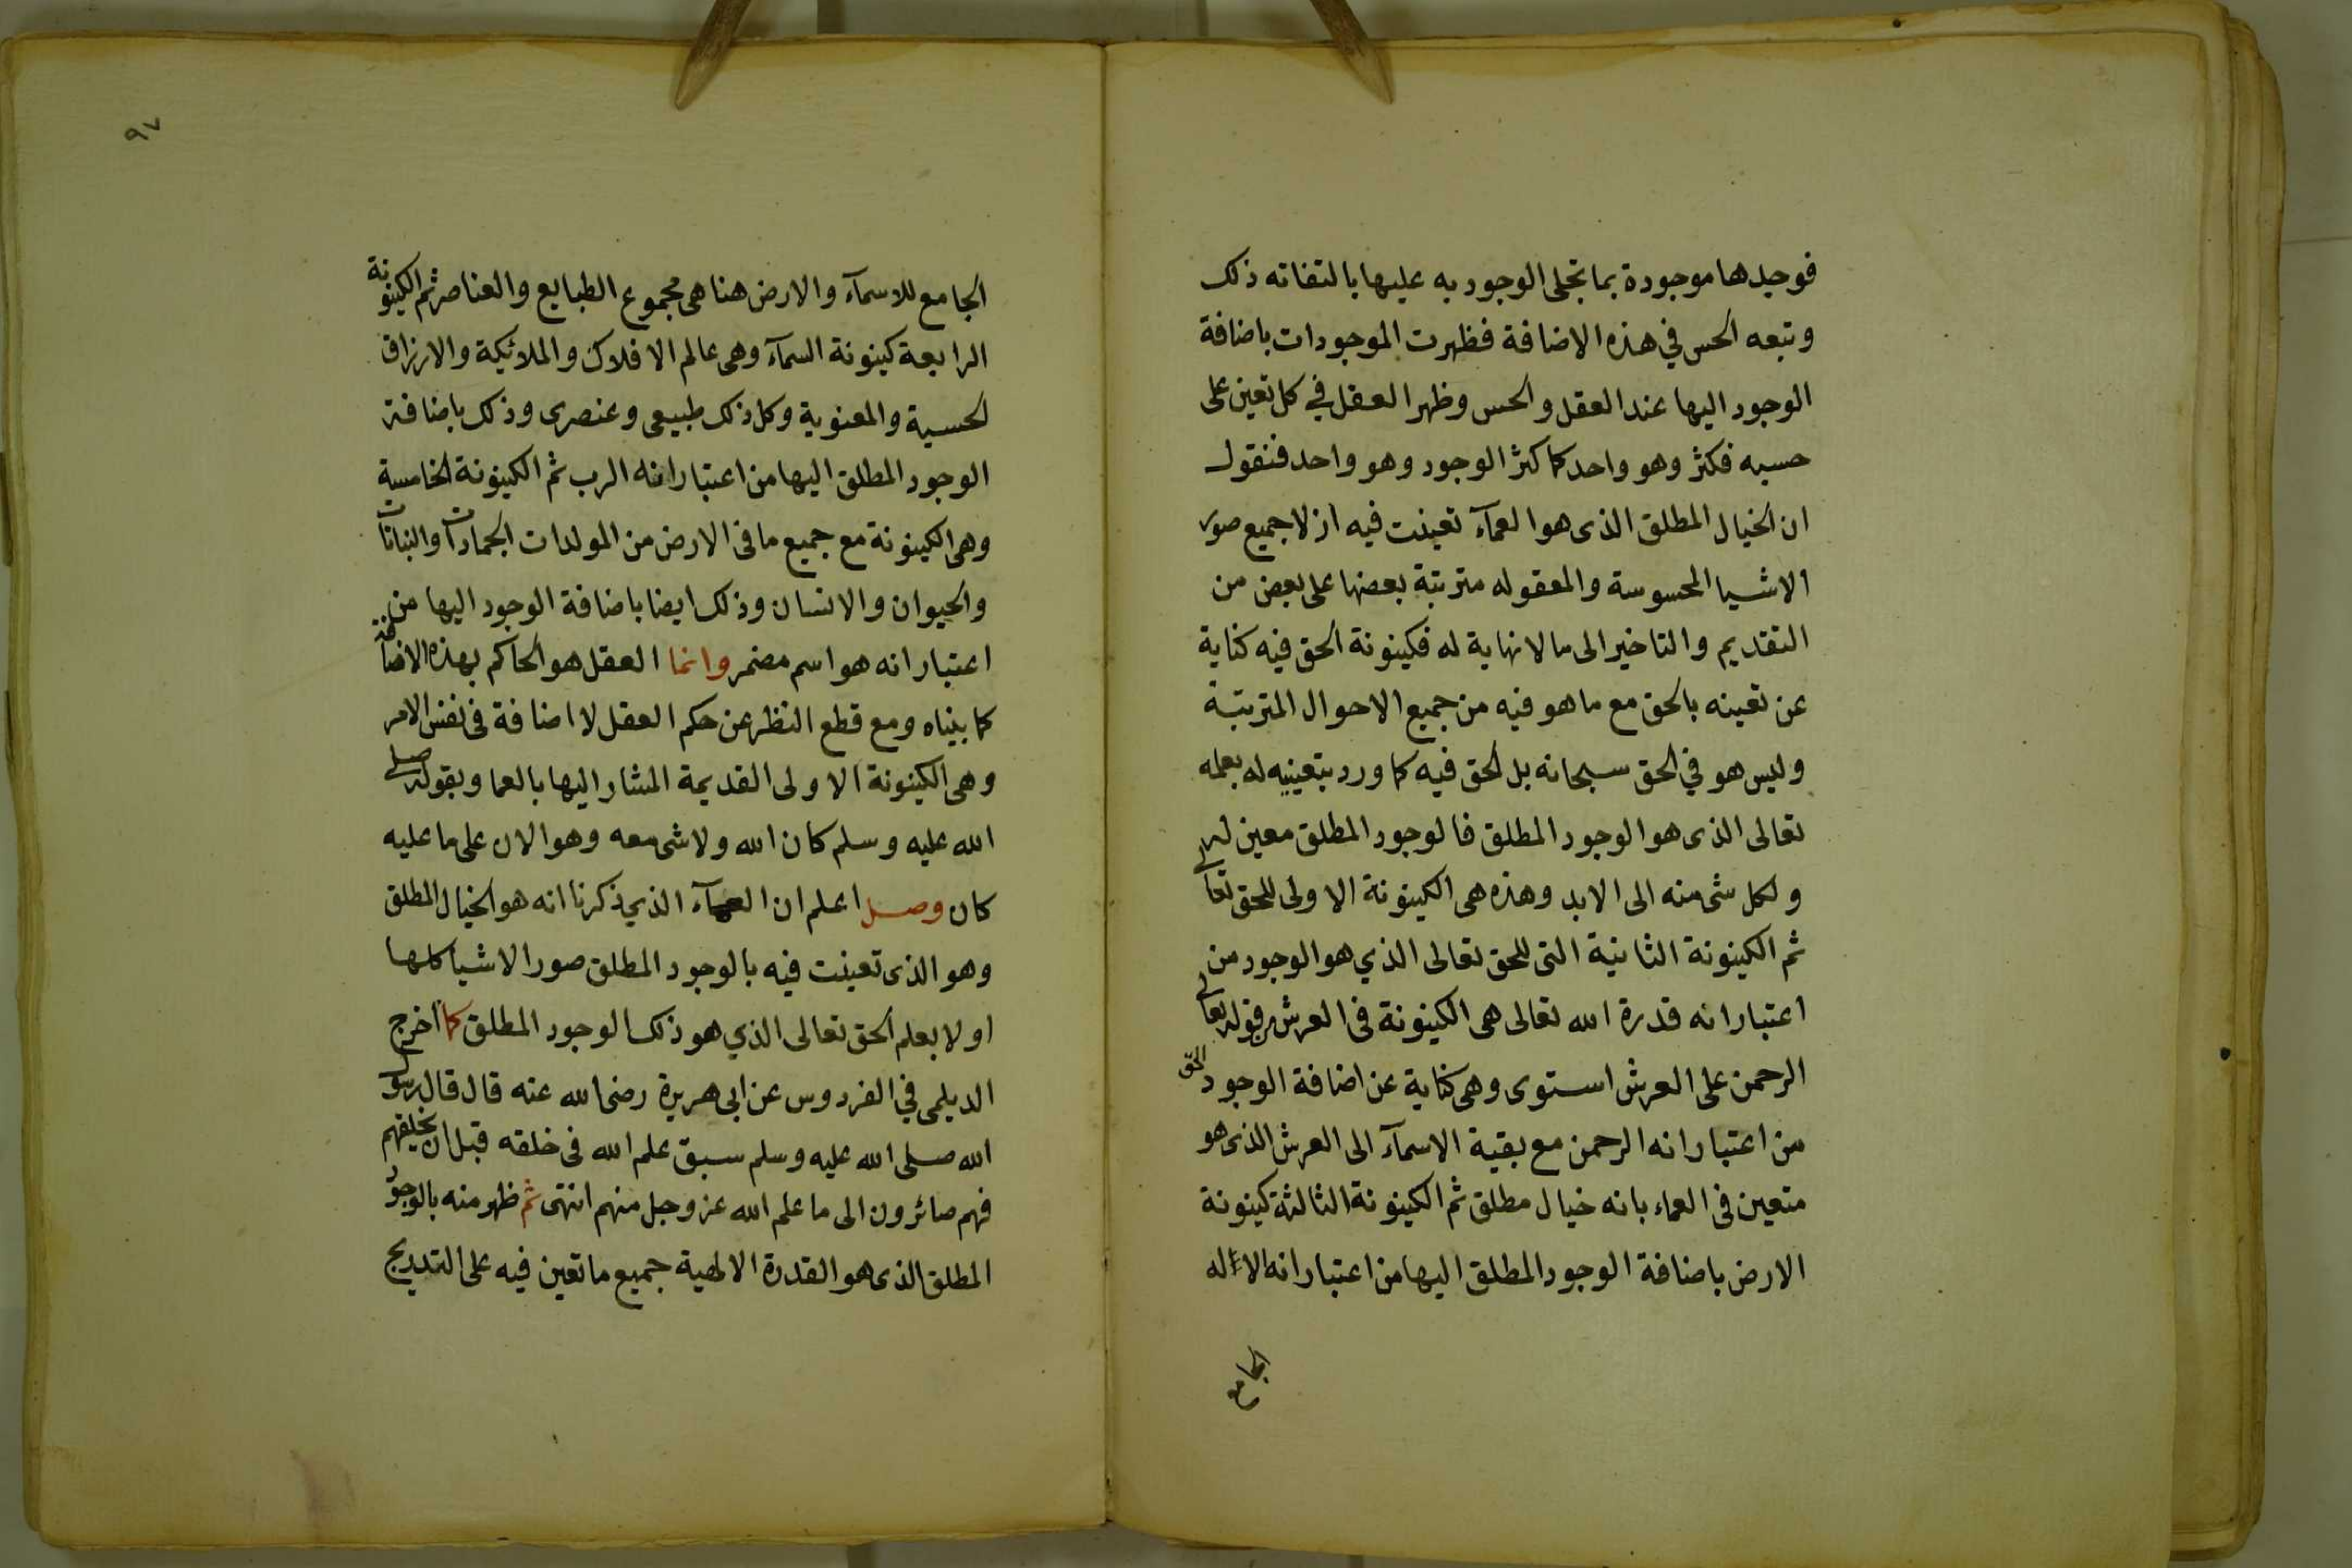 فوجدها موجودة بما تجلى الوجود به عليها بالتفاته ذلك
وتبعه الحس في هذه الاضافة فظهرت الموجودات باضافة
الوجود اليها عند العقل والحس وظهر العقل في كل تعين على
حسبه فكثر وهو واحد كما كثر الوجود وهو واحد فنقول
ان الخيال المطلق الذى هو العمآء تعينت فيه ازلا جميع صور
الاشيا المحسوسة والمعقوله مترتبة بعضها على بعض من
التقديم والتاخير الى ما لا نهاية له فكينونة الحق فيه كناية
عن تعينه بالحق مع ما هو فيه من جميع الاحوال المترتبة
وليس هو في الحق سبحانه بل الحق فيه كما ورد بتعيينه له بعلمه
تعالى الذى هو الوجود المطلق فالوجود المطلق معين له
ولكل شى منه الى الابد وهذه هى الكينونة الاولى للحق تعالى
ثم الكينونة الثانية التى للحق تعالى الذي هو الوجود من
اعتبار انه قدرة الله تعالى هى الكينونة فى العرش من قوله تعالى
الرحمن على العرش استوى وهى كناية عن اضافة الوجود الحق
من اعتبار انه الرحمن مع بقية الاسمآء الى العرش الذى هو
متعين فى العماء بانه خيال مطلق ثم الكينونة الثالثة كينونة
الارض باضافة الوجود المطلق اليها من اعتبار انه الاله
الجامع
٩٧
الجامع للاسمآء والارض هنا هى مجموع الطبايع والعناصر ثم الكينونة
الرابعة كينونة السمآء وهى عالم الافلاك والملائكة والارزاق
الحسية والمعنوية وكل ذلك طبيعى وعنصرى وذلك باضافة
الوجود المطلق اليها من اعتبار انه الرب ثم الكينونة الخامسة
وهى الكينونة مع جميع ما فى الارض من المولدات الجمادات والنباتات
والحيوان والانسان وذلك ايضا باضافة الوجود اليها من
اعتبار انه هو اسم مضمر وانما العقل هو الحاكم بهذه الاضافة
كما بيناه ومع قطع النظر عن حكم العقل لا اضافة فى نفس الامر
وهى الكينونة الاولى القديمة المشار اليها بالعما وبقوله صلى
الله عليه وسلم كان الله ولا شى معه وهو الان على ما عليه
كان وصل اعلم ان العمآء الذي ذكرنا انه هو الخيال المطلق
وهو الذى تعينت فيه بالوجود المطلق صور الاشيا كلها
اولا بعلم الحق تعالى الذي هو ذلك الوجود المطلق كما اخرج
الديلمى في الفردوس عن ابى هريرة رضى الله عنه قال قال رسول
الله صلى الله عليه وسلم سبق علم الله فى خلقه قبل ان يخلقهم
فهم صائرون الى ما علم الله عز وجل منهم انتهى ثم ظهر منه بالوجود
المطلق الذى هو القدرة الالهية جميع ما تعين فيه على التدريج